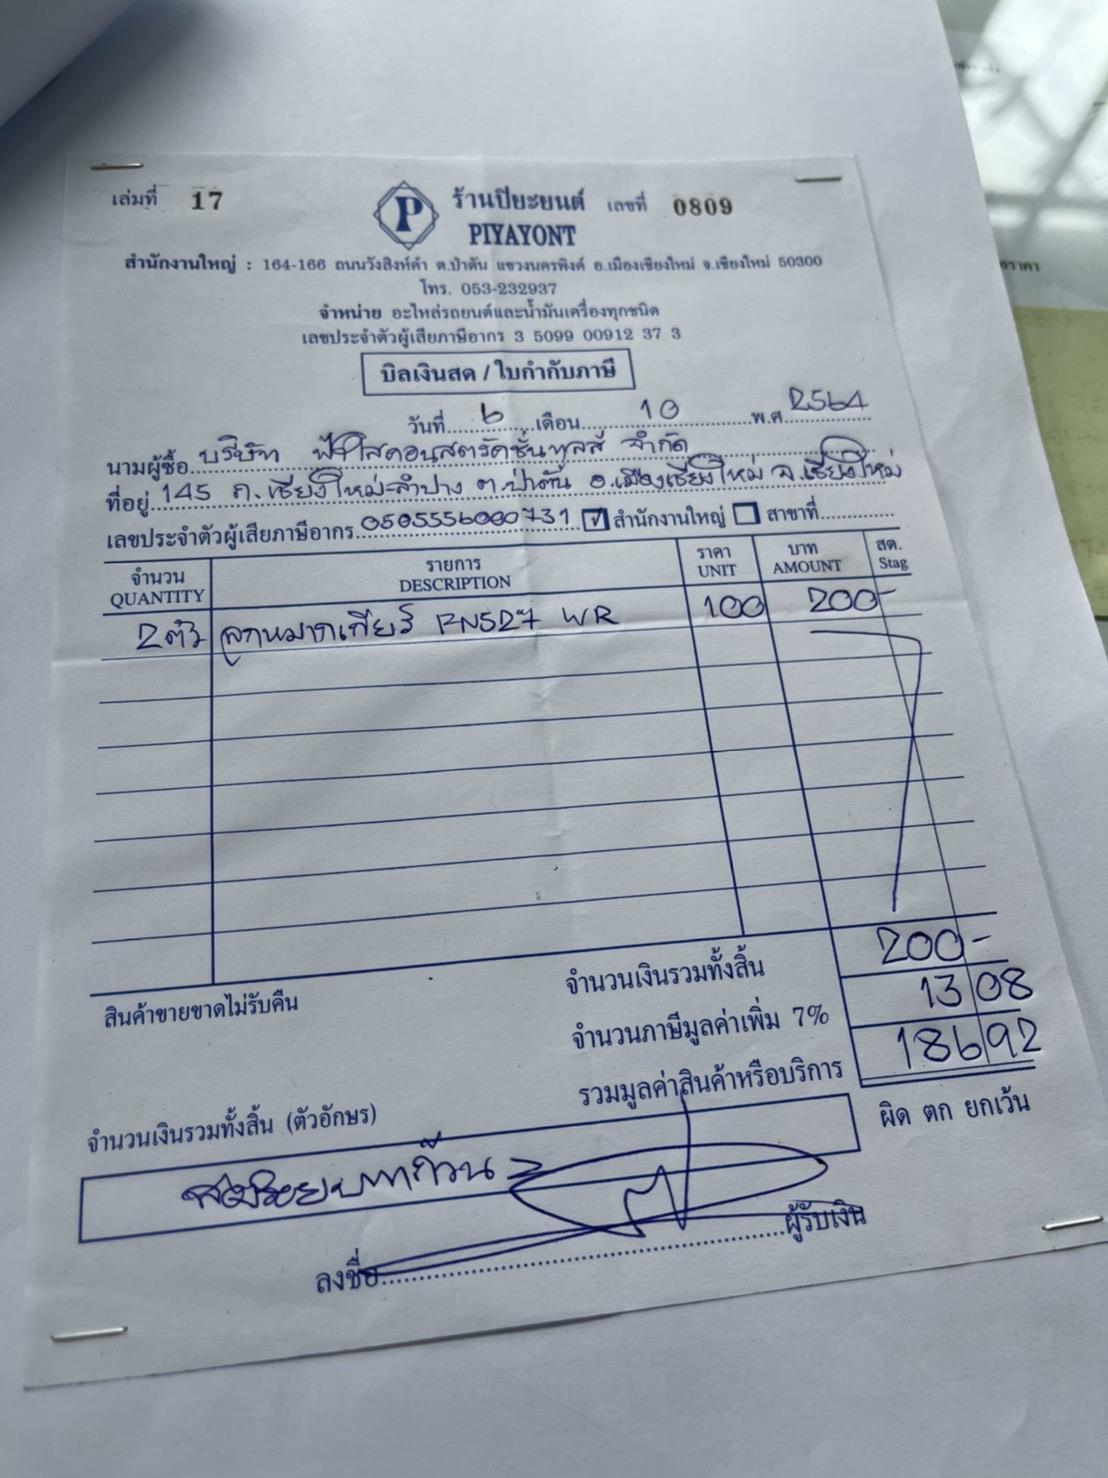 เล่มที่ 17
P
ร้านปิยะยนต์ เลขที่ 0809
PIYAYONT
สำนักงานใหญ่ : 164-166 ถนนวังสิงห์คำ ต.ป่าตัน แขวงนครพิงค์ อ.เมืองเชียงใหม่ จ.เชียงใหม่ 50300
โทร. 053-232937
จำหน่าย อะไหล่รถยนต์และน้ำมันเครื่องทุกชนิด
เลขประจำตัวผู้เสียภาษีอากร 3 5099 00912 37 3
บิลเงินสด / ใบกำกับภาษี
วันที่ 6 เดือน 10 พ.ศ. 2564
นามผู้ซื้อ บริษัท ฟ้าใสคอนสตรัคชั่นทูลส์ จำกัด
ที่อยู่ 145 ถ.เชียงใหม่-ลำปาง ต.ป่าตัน อ.เมืองเชียงใหม่ จ.เชียงใหม่
เลขประจำตัวผู้เสียภาษีอากร 0505556000731 ☑ สำนักงานใหญ่ ☐ สาขาที่
จำนวน รายการ ราคา บาท สต.
QUANTITY DESCRIPTION UNIT AMOUNT Stag
2ตัว ลูกหมากเกียร์ FN527 WR 100 200-
จำนวนเงินรวมทั้งสิ้น 200-
สินค้าขายขาดไม่รับคืน
จำนวนภาษีมูลค่าเพิ่ม 7% 13 08
รวมมูลค่าสินค้าหรือบริการ 186 92
จำนวนเงินรวมทั้งสิ้น (ตัวอักษร)
ผิด ตก ยกเว้น
สองร้อยบาทถ้วน
ลงชื่อ ผู้รับเงิน